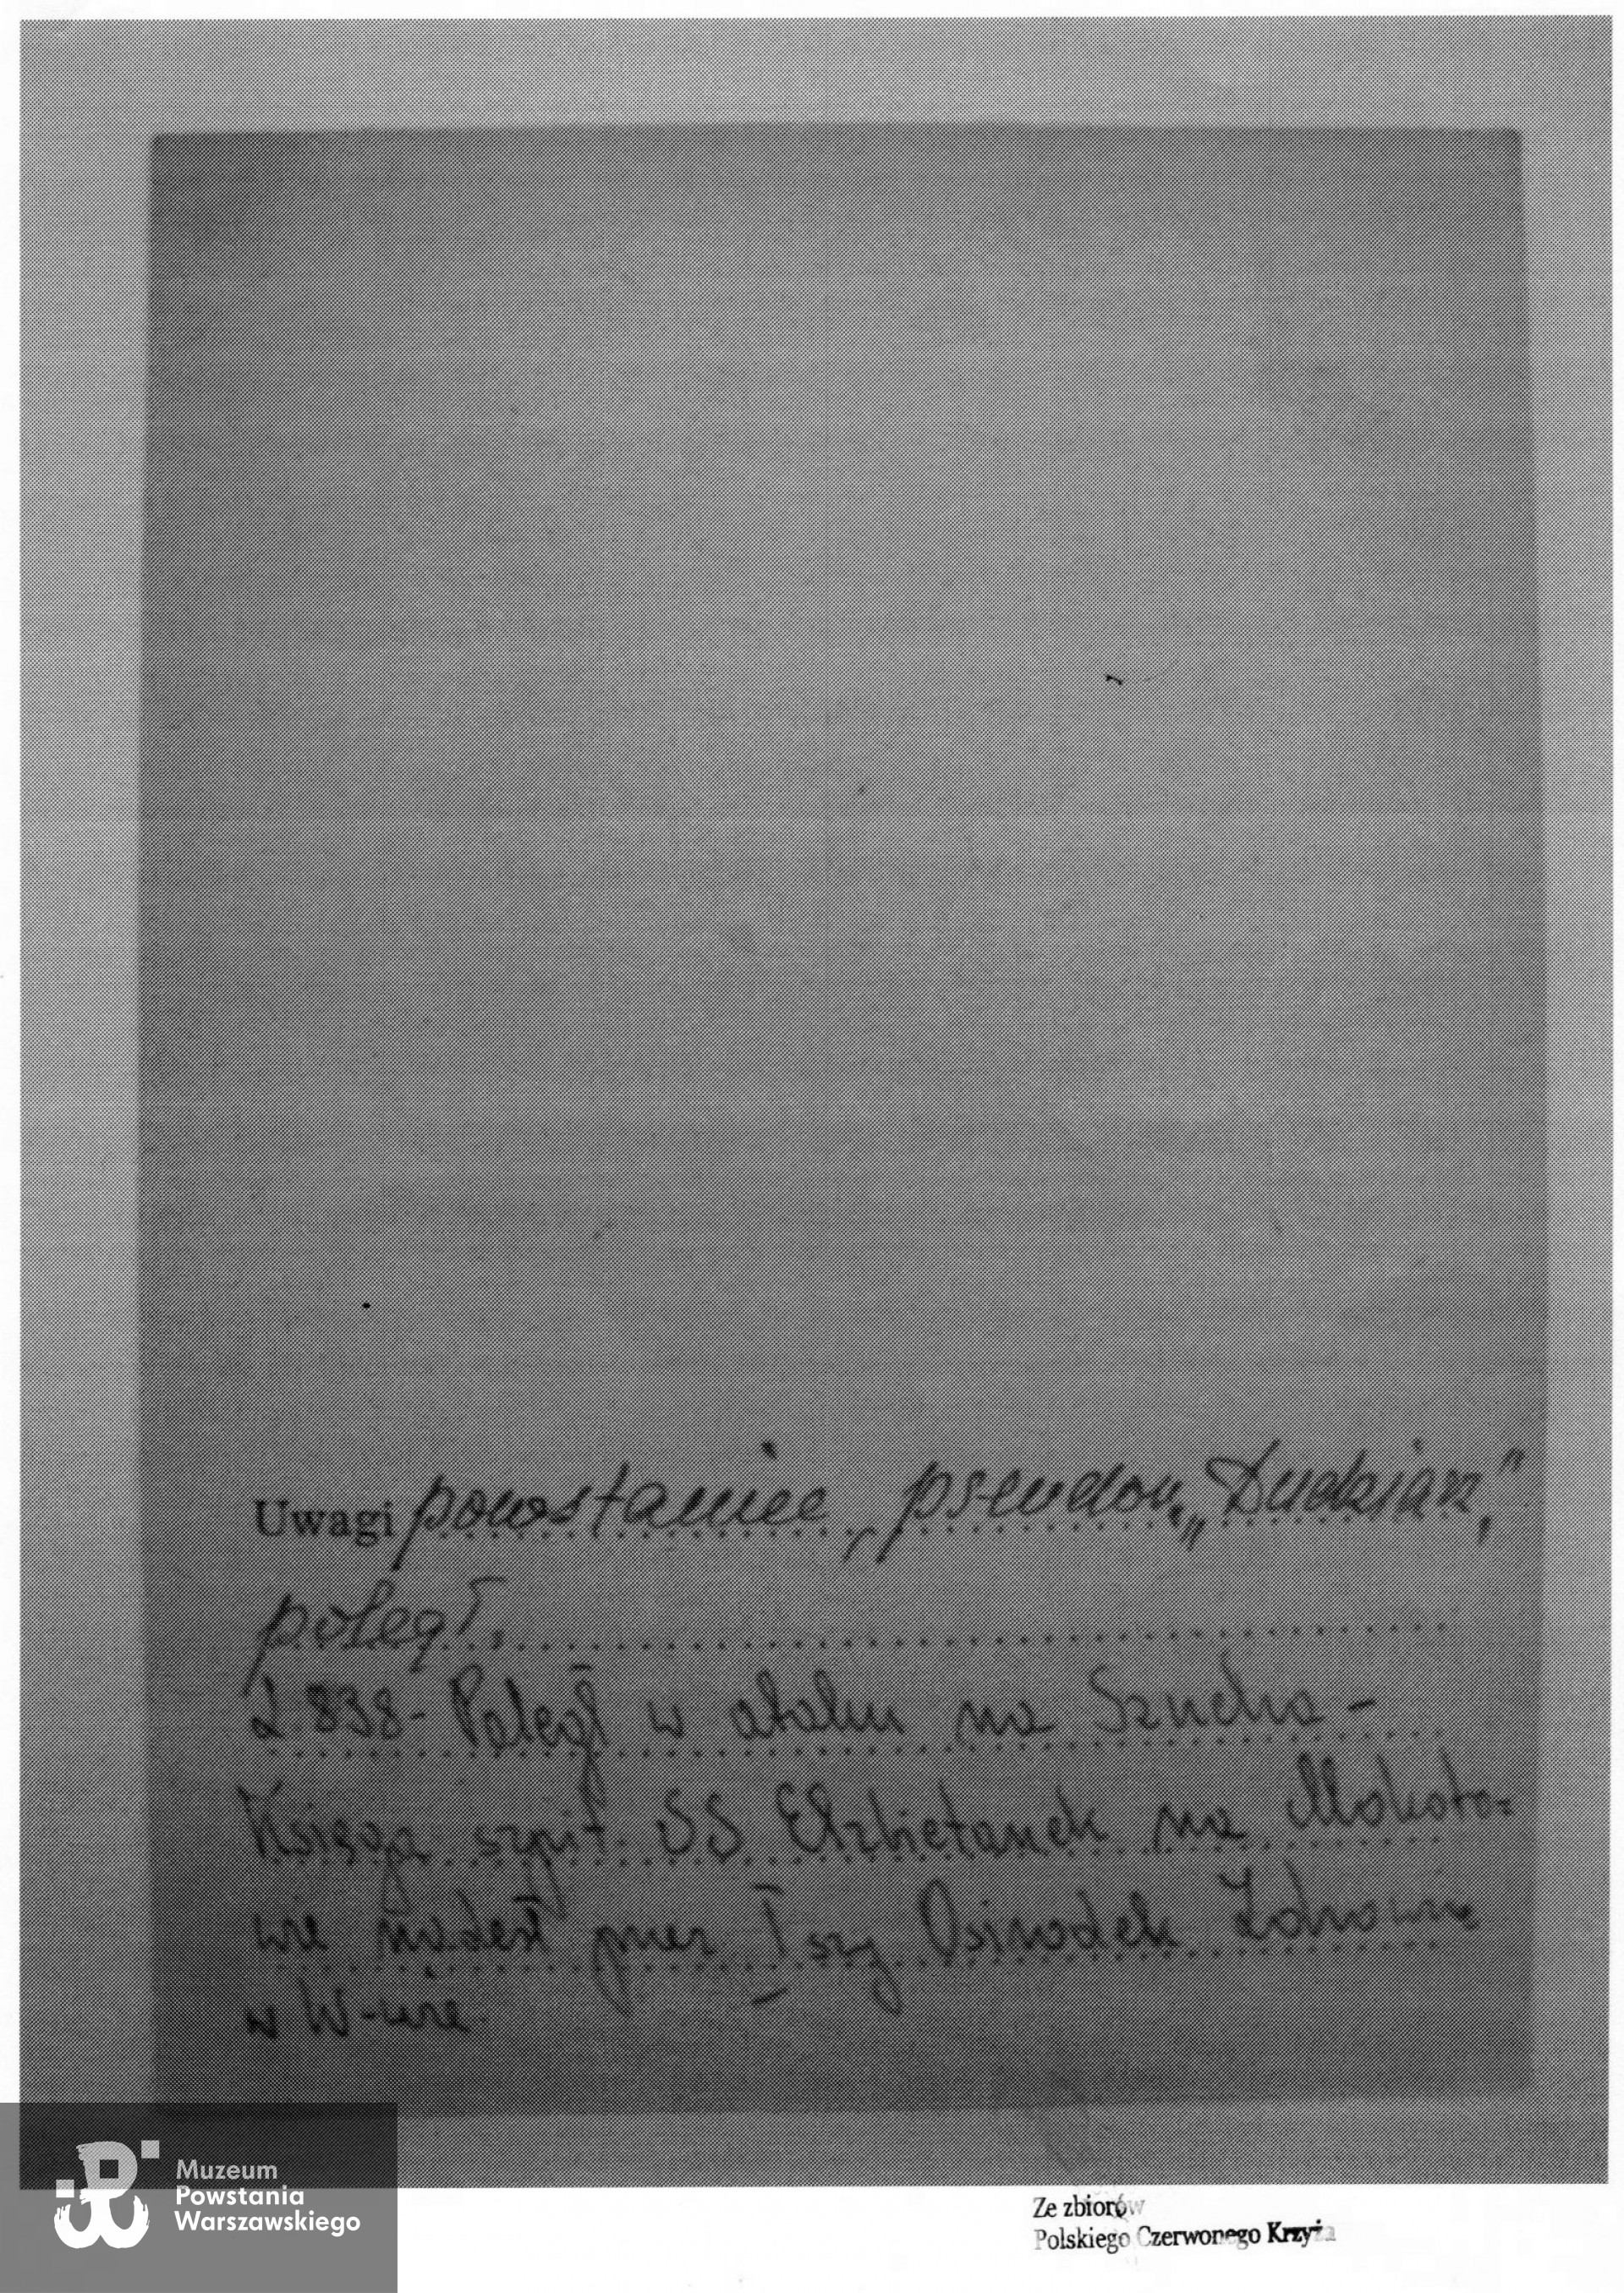 Uwagi powstaniec, pseudon „Dudziarz"
poległ.
L 838 - Poległ w ataku na Szucha -
Księga szpit. SS Elżbietanek na Mokoto=
wie nadesł przez I szy Ośrodek Zdrowia
w W-wie.
Muzeum
Powstania
Warszawskiego
Ze zbiorów
Polskiego Czerwonego Krzyża